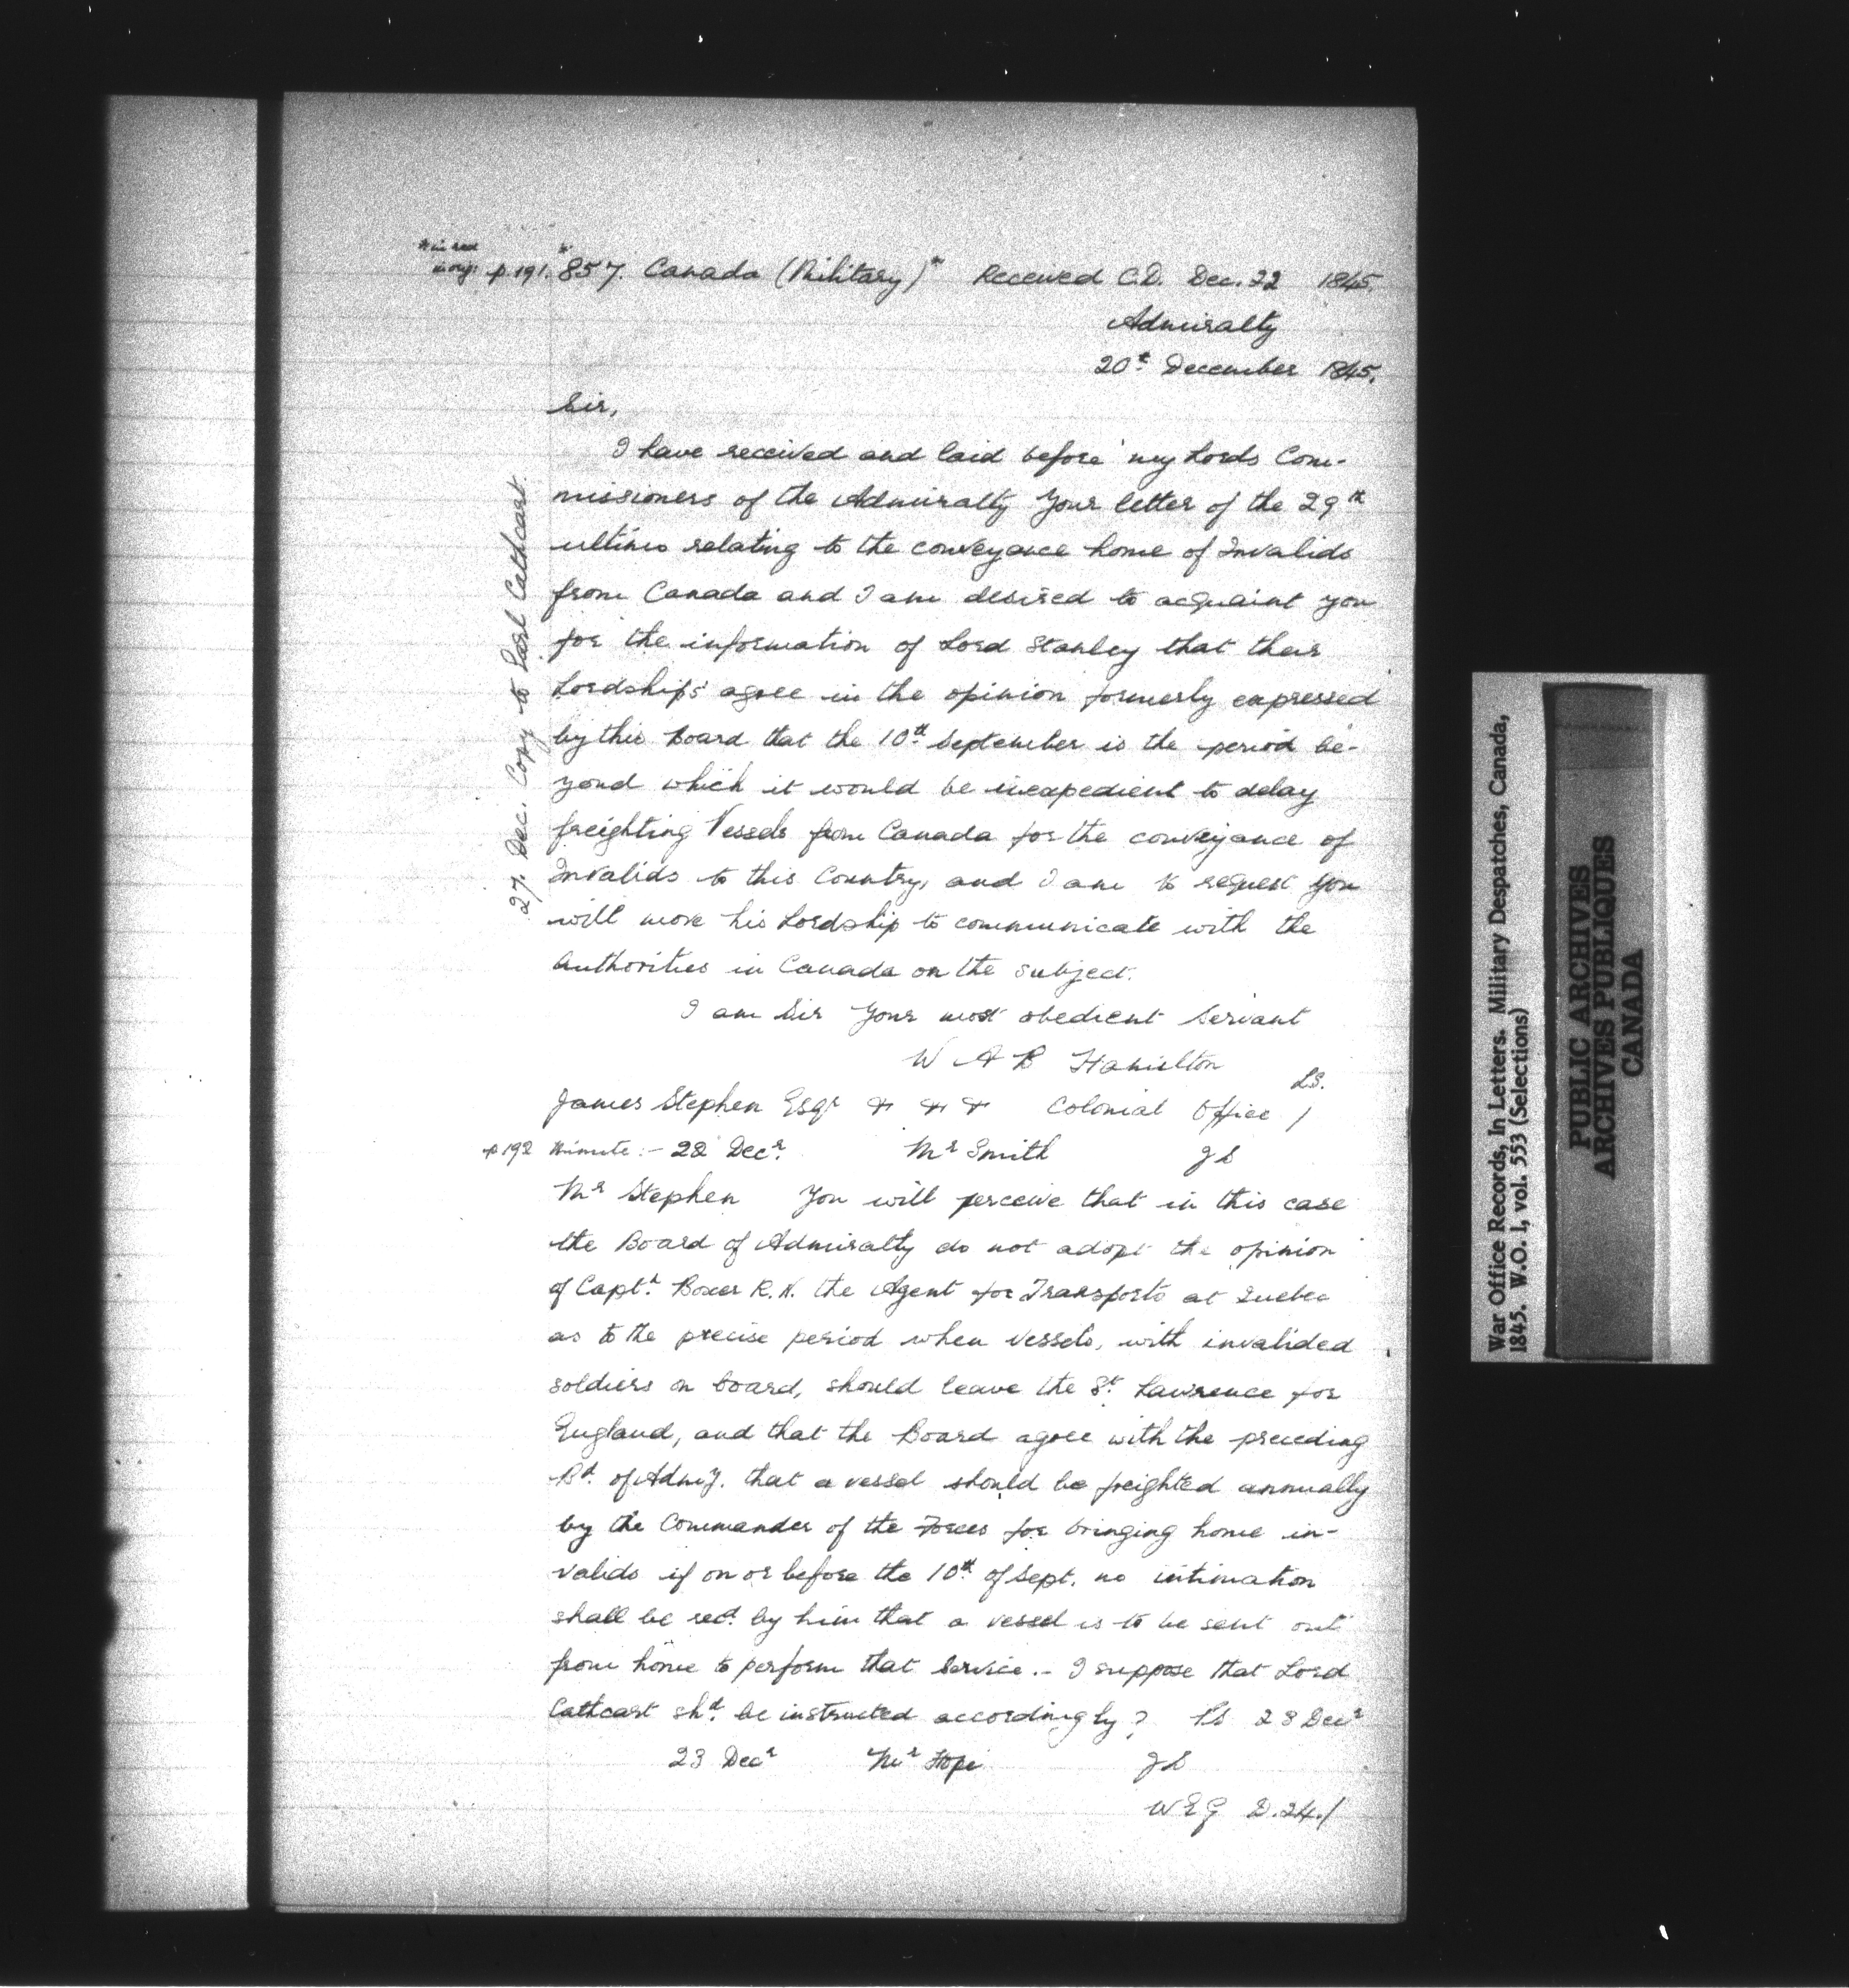 * in red
in orig: p.191. *857. Canada (Military)* Received C.D. Dec. 22 1845.
Admiralty
20th December 1845.
Sir,
I have received and laid before my Lords Com-
missioners of the Admiralty Your letter of the 29th
ultimo relating to the conveyance home of Invalids
from Canada and I am desired to acquaint you
for the information of Lord Stanley that their
Lordships agree in the opinion formerly expressed
by this Board that the 10th September is the period be-
yond which it would be inexpedient to delay
freighting Vessels from Canada for the conveyance of
Invalids to this Country, and I am to request you
will move his Lordship to communicate with the
Authorities in Canada on the subject.
I am Sir Your most obedient Servant
W A B Hamilton
LS.
James Stephen Esqr & & & Colonial Office /
27. Dec. Copy to Earl Cathcart.
p192 Minute:- 22 Decr. Mr Smith JS
Mr Stephen You will perceive that in this case
the Board of Admiralty do not adopt the opinion
of Captn. Boxer R.N. the Agent for Transports at Quebec
as to the precise period when vessels, with invalided
soldiers on board, should leave the St. Lawrence for
England, and that the Board agree with the preceding
Bd. of Admy. that a vessel should be freighted annually
by the Commander of the Forces for bringing home in-
valids if on or before the 10th of Sept. no intimation
shall be recd. by him that a vessel is to be sent out
from home to perform that Service.- I suppose that Lord
Cathcart shd. be instructed accordingly? PS 23 Decr
23 Decr Mr Hope JS
WEG D.24./
War Office Records, In Letters. Military Despatches, Canada,
1845. W.O. 1, vol. 553 (Selections)
PUBLIC ARCHIVES
ARCHIVES PUBLIQUES
CANADA